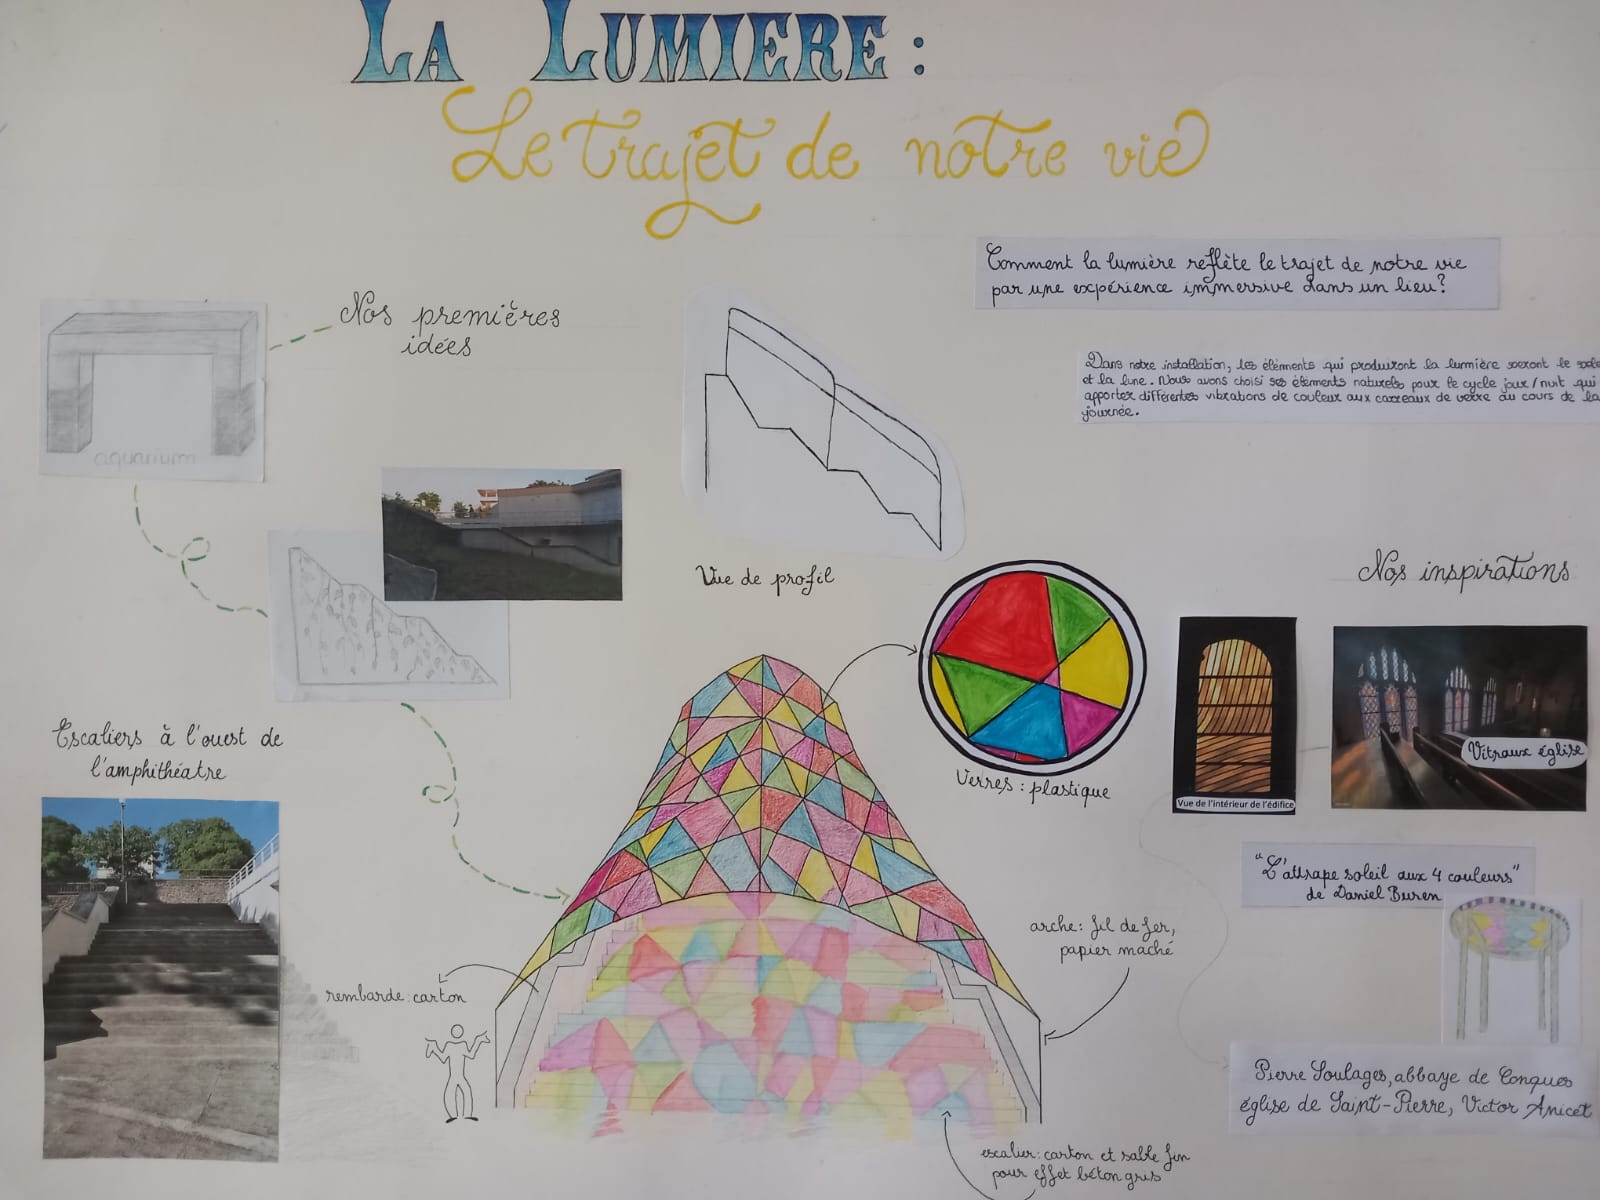 LA LUMIERE :
Le trajet de notre vie
Comment la lumière reflète le trajet de notre vie
par une expérience immersive dans un lieu?
Nos premières
idées
Dans notre installation, les éléments qui produiront la lummière seront le
et la lune. Nous avons choisi ses éléments naturels pour le cycle jour/nuit qui
apporter différentes vibrations de couleur aux carreaux de verre au cours de la
journée.
aquarium
Vue de profil
Nos inspirations
Vitraux église
Vue de l'intérieur de l'édifice
Verres : plastique
Escaliers à l'ouest de
l'amphithéatre
"L'attrape soleil aux 4 couleurs"
de Daniel Buren
arche: fil de fer,
papier maché
rembarde: carton
Pierre Soulages, abbaye de Conques
église de Saint-Pierre, Victor Anicet
escalier: carton et sable fin
pour effet béton gris